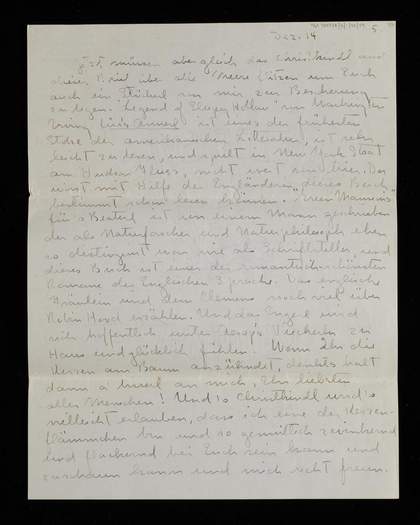 5
Dez. 14
Jetzt müssen aber gleich das Christkindl und
dieser Brief über alle Meere flitzen um Euch
auch ein Stückerl von mir zur Bescherung
zu legen. "Legend of Sleepy Hollow" von Washington
Irving fürs Annerl ist eines der frühesten
Stücke der amerikanischen Litteratur, ist sehr
leicht zu lesen, und spielt in New York Staat
am Hudson Fluss, nicht weit von hier. Du
wirst mit Hilfe der Engländerin dieses Buch
bestimmt schon lesen können. Green Mansions
für's Beaterl ist von einem Mann geschrieben
der als Naturforscher und Naturphilosoph eben
so destinguiert war wie als Schriftsteller, und
dieses Buch ist einer der romantisch-schönsten
Romane der Englischen Sprache. Das englische
Fräulein und dem Clemens noch viel über
Robin Hood erzählen. Und das Engerl wird
sich hoffentlich unter Tierherln zu
Haus und glücklich fühlen! Wenn Ihr die
Kerzen am Baum anzündet, denkts halt
dann a bisserl an mich, Ihr liebsten
aller Menschen! Und 's Christkindl wird's
vielleicht erlauben, dass ich eine der Kerzen-
flämmchen bin und so gemütlich zwinkernd
und flackernd bei Euch sein kann und
zuschaun kann und mich recht freuen.